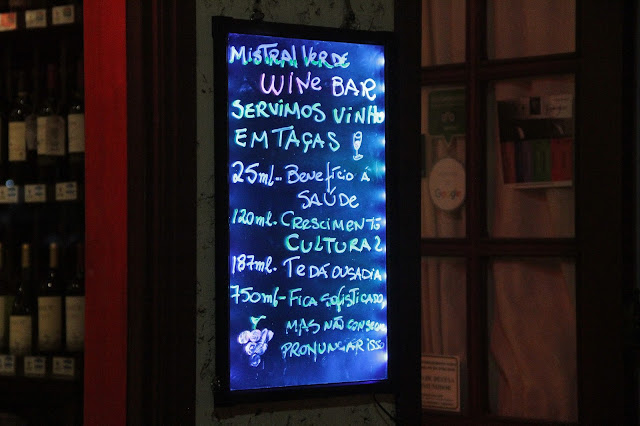 MISTRAL VERDE
WINE BAR
SERVIMOS VINHO
EM TAÇAS
25ml - BENEFÍCIO Á
SAÚDE
120ml - CRESCIMENTO
CULTURAL
187ml - TE DÁ OUSADIA
750ml - FICA SOFISTICADO,
MAS NÃO CONSEGUE
PRONUNCIAR ISSO
Google